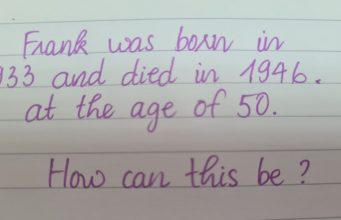 Frank was born in
933 and died in 1946.
at the age of 50.
How can this be?